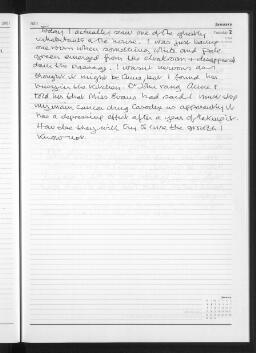 January
Tuesday 2
Today I actually saw one of the ghostly
inhabitants of the house. I was just being
when something white and pale
green emerged from the cloakroom + disappeared
down the passage. I wasn't nervous as I
thought it might be Anne, but I found her
busy in the kitchen. Dr John rang Anne &
told her that Miss Evans had said I must stop
my main cancer drug Casodex as apparently it
has a depressive effect after a year of taking it.
How else they will try to cure the growth I
know not.
January